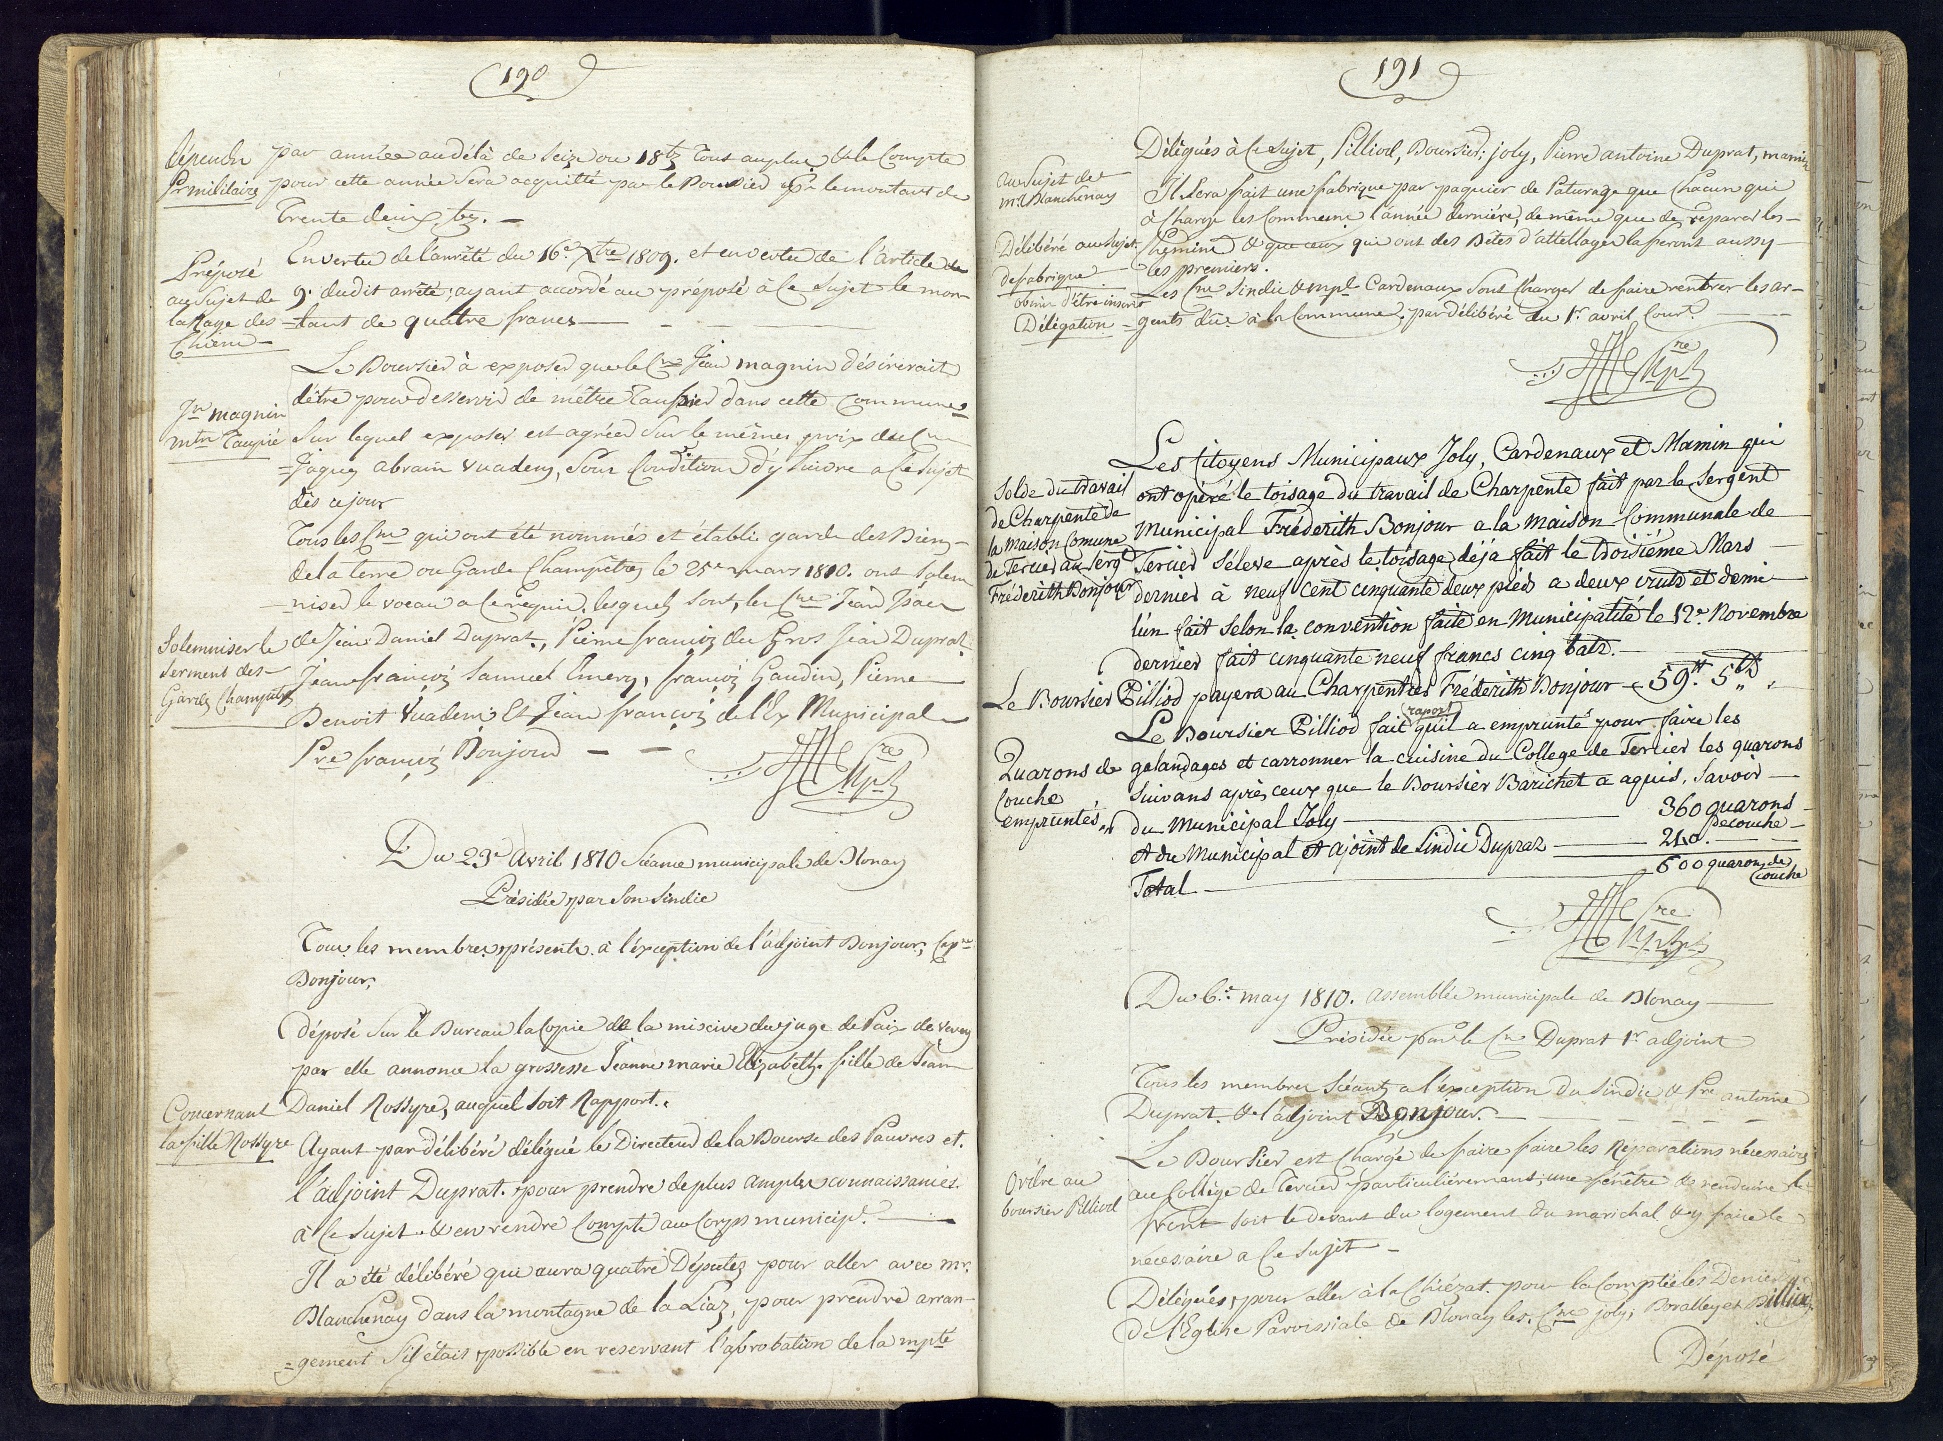 190
dépendu
Pr militaire
par année audélà de seize ou 18 tz tous au plus, & le Compte
pour cette année sera acquitté par le Boursier pr le montant de
Trente deux tz. —
Préposé
au Sujet de
la Rage des
Chiens —
En vertu de l'arrêté du 16e Xbre 1809. et en vertu de l'article
9. dudit arrêté, ayant accordé au préposé à ce sujet le mon-
-tant de quatre francs —
Jn magnin
mtre Taupié
Le Boursier à exposer que le Cn Jean magnin désirerait
d'être pour desservir de mêtre Taupier dans cette Commune
Sur lequel exposer est agréer sur le mêmes prix du Cn
Jaques abram Vuadens, sous Condition d'y suivre a ce sujet
dès ce jour
Tous les Cns qui ont été nommés et établi garde des Biens
de la terre ou Garde Champêtres le 25e mars 1810. ont solem
-niser le voeau a ce requis, lesquels sont, les Cns Jean Isac
Solemniser le
serment des
Gardes Champêtres
de Jean Daniel Duprat, Pierre françois du Gros Jean Duprat
Jean françois Samuel Emery, françois Gaudin, Pierre
Benoit Vuadens Et Jean françois de l'Ex Municipal
Pre françois Bonjour — —
Du 23e Avril 1810 Séance municipale de Blonay
Présidée par son Sindic
Tous les membres présents à l'éxception de l'adjoint Bonjour, Capne
Bonjour,
Déposé sur le Bureau la Copie de la miscive du juge de Paix de Vevey
par elle annonce la grossesse Jeanne marie Elizabeth fille de Jean
Daniel Rossyre, auquel soit Rapport.
Concernant
la fille Rossyre
Ayant par délibéré délégué le Directeur de la Bourse des Pauvres et
l'adjoint Duprat. pour prendre de plus amples connaissances
à ce sujet & en rendre Compte au Corps municipl. —
Il a été délibéré qui aura quatre Députés pour aller avec mr.
Blanchenay dans la montagne de la Liaz, pour prendre arran-
-gement s'il était possible en reservant l'aprobation de la mpté
191
Délégués à ce sujet, Pilliod, Boursier; joly, Pierre antoine Duprat, mamin
au Sujet de
mr Blanchenay
Il sera fait une fabrique par paquier de Paturage que chacun qui
à Chargé les Communs l'année dernière, de même que de réparer les
Délibéré au sujet
de fabrique
Chemins & que ceux qui ont des Bêtes d'attellages la feront aussy
les premiers.
obmis d'être inscrit
Délégation
Les Cns Sindic & mpl Cardenaux sont Chargés de faire rentrer les ar-
-gents dûs à la Commune. par délibéré du 1er avril Court.
Les Citoyens Municipaux Joly, Cardenaux et Mamin qui
Solde du travail
de Charpente de
la Maison Comune
de Tercier au Sergt
Fréderith Bonjour
ont opéré le toisage du travail de Charpente fait par le Sergent
Municipal Fréderith Bonjour a la Maison Communale de
Tercier s'éleve après le toisage déja fait le troisième Mars
dernier à neuf Cent cinquante deux pied a deux cruts et demi
l'un fait selon la convention faite en Municipalité le 12e Novembre
dernier fait cinquante neuf francs cinq batz. —
Le Boursier Pilliod payera au Charpentier Fréderith Bonjour — 59 tt. 5 tz
Le Boursier Pilliod fait raport qu'il a emprunté pour faire les
Quarons de
Couche
empruntés
galandages et carronner la cuisine du College de Tercier les quarons
Suivans après ceux que le Boursier Barichet a aquis, Savoir —
du Municipal Joly — 360 quarons
de couche
et du Municipal et ajoint de Sindic Dupraz — 240. —
Total — 600 quarons de
couche
Du 6e may 1810. assemblée municipale de Blonay —
Présidée par le Cn Duprat 1er adjoint
Tous les membres Séants a l'éxception du Sindic & Pre antoine
Duprat & l'adjoint Bonjour. —
Ordre au
boursier Pilliod
Le Boursier est Chargé de faire faire les Réparations nécessaires
au Collége de Tercier particulièrement, une fenêtre & renduire le
front soit le devant du logement du marichal & y faire le
nécessaire a ce sujet —
Délégués, pour aller à la Chiézat. pour la Comptée les Deniers
de l'Eglise Parroissiale de Blonay les. Cns joly, Boralley et Pilliod
Déposé